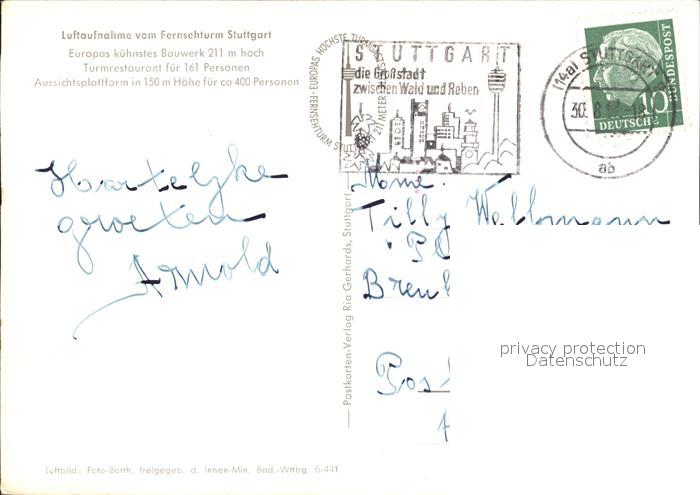 Luftaufnahme vom Fernsehturm Stuttgart
Europas kühnstes Bauwerk 211 m hoch
Turmrestaurant für 161 Personen
Aussichtsplattform in 150 m Höhe für ca 400 Personen
EUROPAS HÖCHSTE
FERNSEHTURM STUTTGART 211 METER
STUTTGART
die Großstadt
zwischen Wald und Reben
(14a) STUTTGART
30. 8.
ab
10
DEUTSCHE
BUNDESPOST
Hartelyke
groeten
Arnold
Postkarten-Verlag Ria Gerhards, Stuttgart
Mome.
Tilly Wellmann
Pl
Breul
Pos
privacy protection
Datenschutz
Luftbild: Foto-Barth, freigegeb. d. Innen-Min. Bad.-Wttbg. 6-441